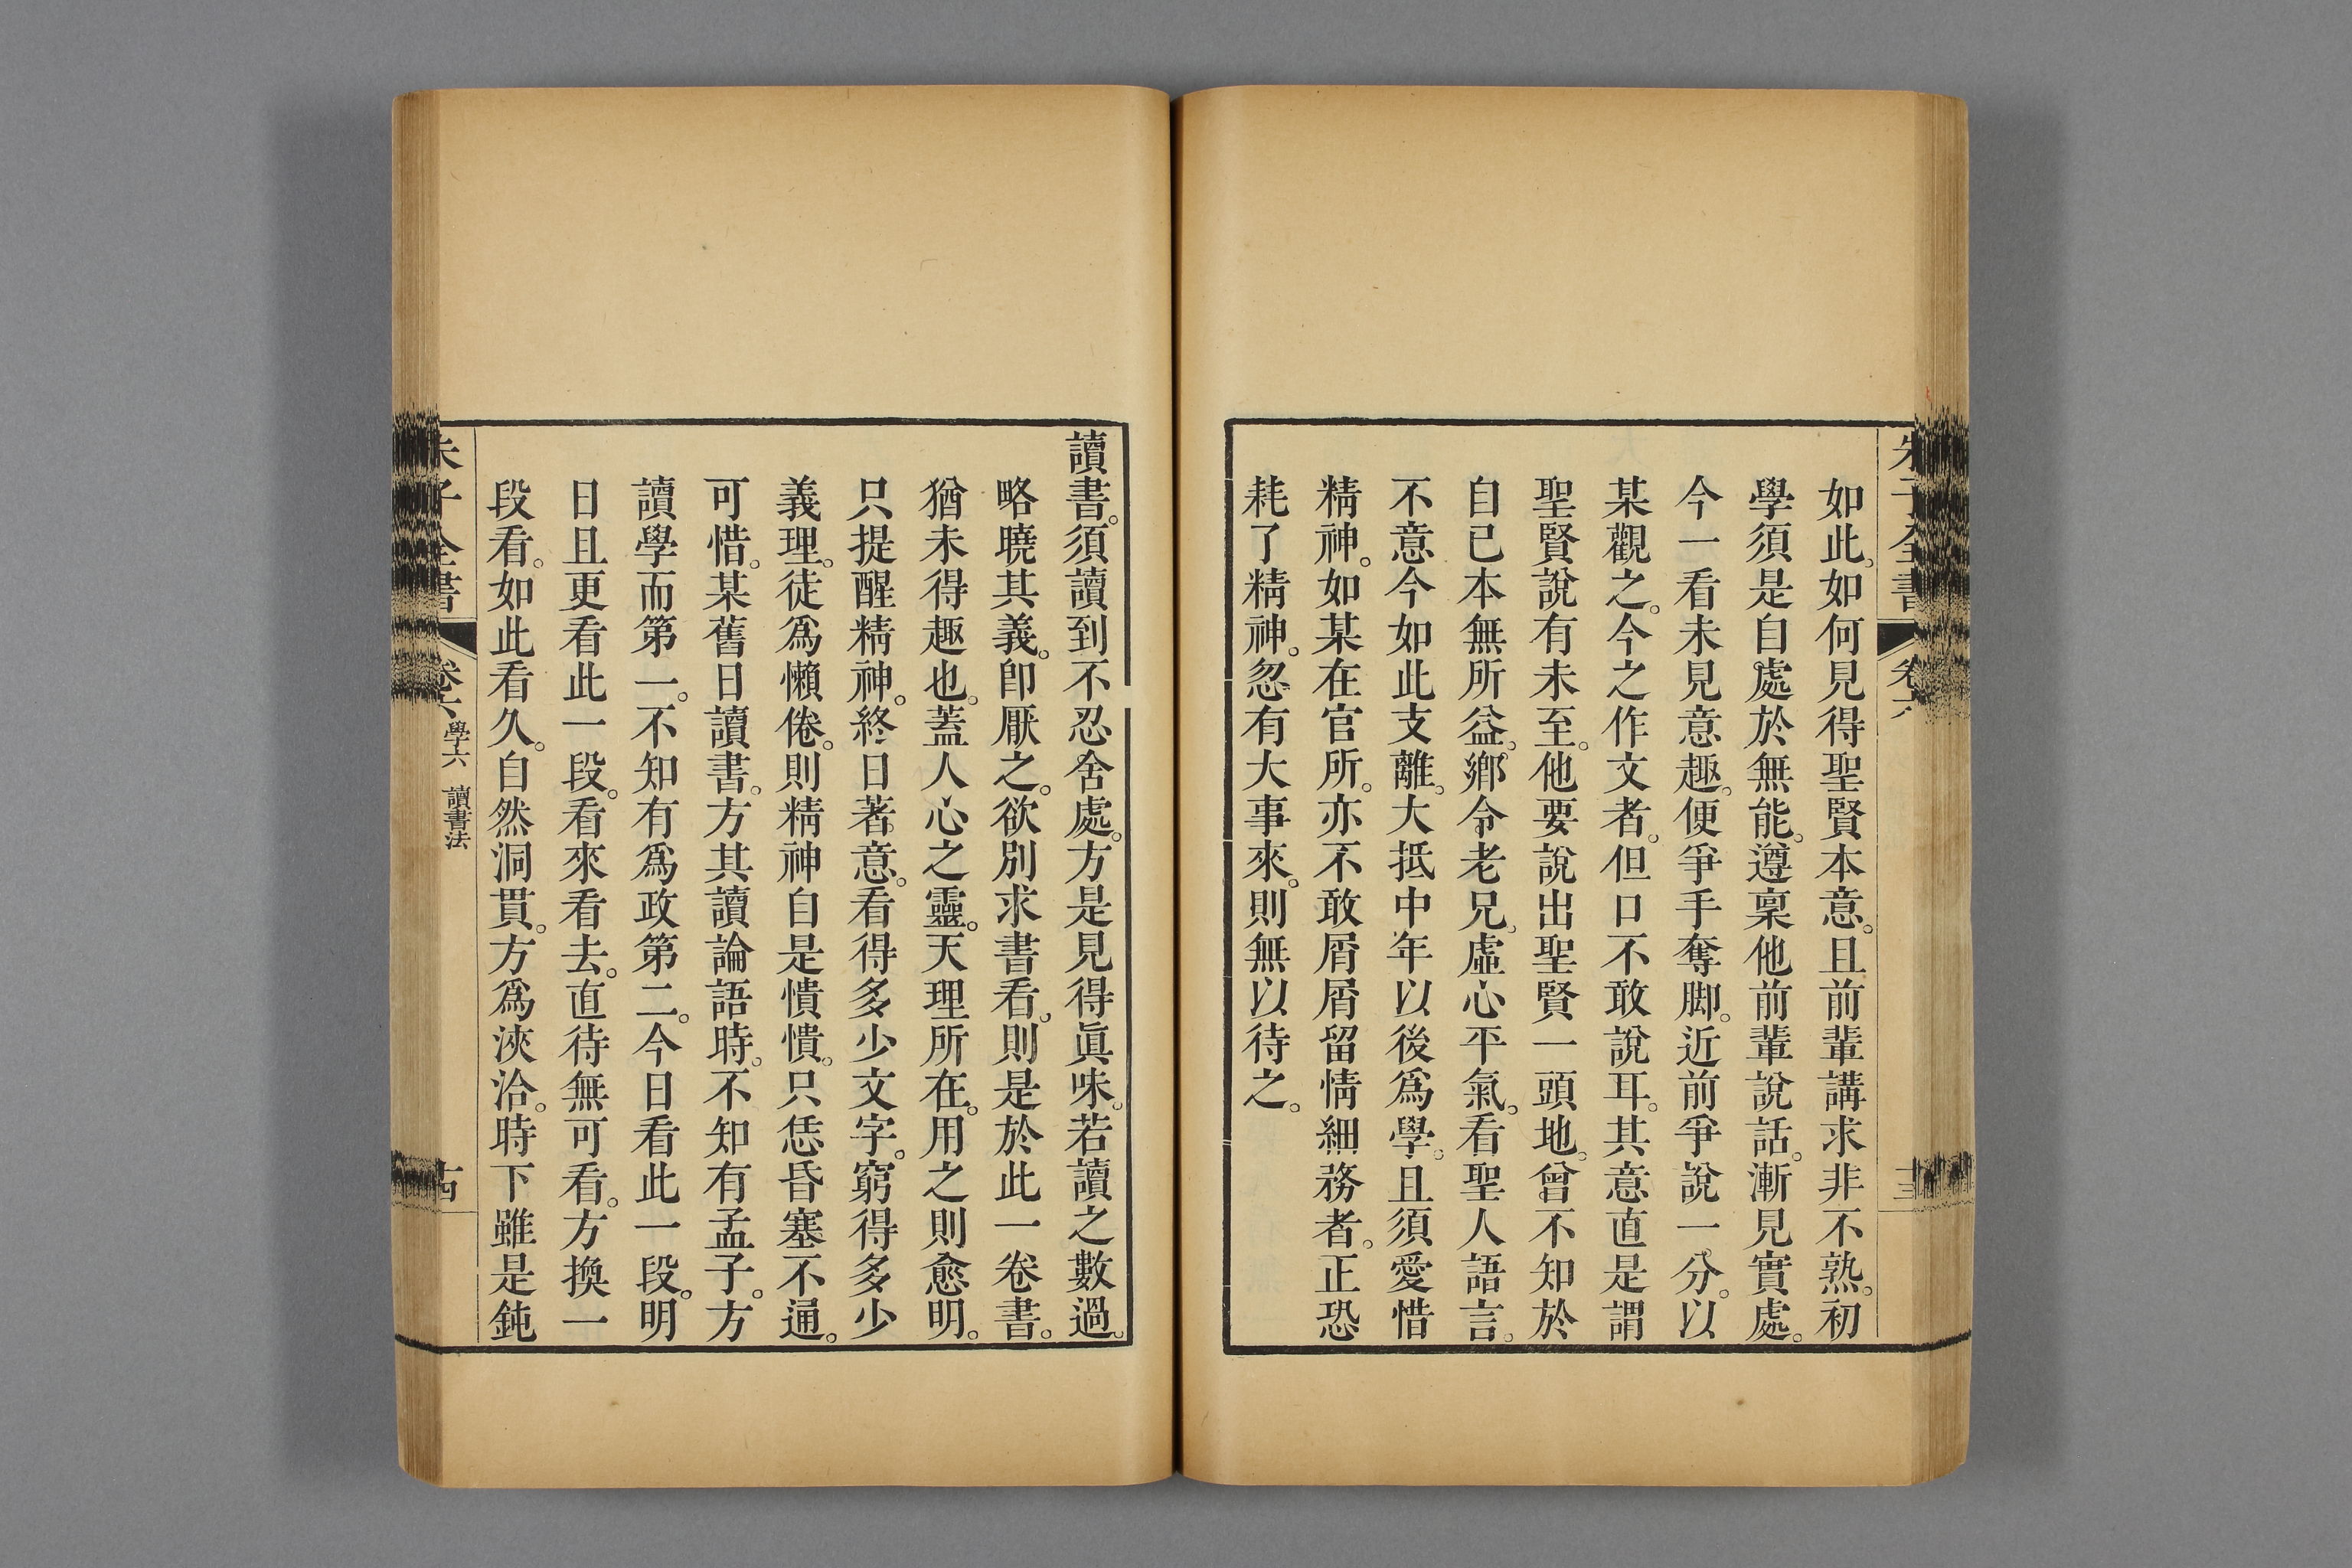 朱子全書
卷六
十三
如此。如何見得聖賢本意。且前輩講求非不熟。初
學須是自處於無能。遵稟他前輩說話。漸見實處。
今一看未見意趣。便爭手奪脚。近前爭說一分。以
某觀之。今之作文者。但口不敢說耳。其意直是謂
聖賢說有未至。他要說出聖賢一頭地。曾不知於
自已本無所益。鄉令老兄。虛心平氣。看聖人語言。
不意今如此支離。大抵中年以後爲學。且須愛惜
精神。如某在官所。亦不敢屑屑留情細務者。正恐
耗了精神。忽有大事來。則無以待之。
讀書。須讀到不忍舍處。方是見得眞味。若讀之數過。
略曉其義。卽厭之。欲別求書看。則是於此一卷書。
猶未得趣也。蓋人心之靈。天理所在。用之則愈明。
只提醒精神。終日著意。看得多少文字。窮得多少
義理。徒爲懶倦。則精神自是憒憒。只恁昏塞不通。
可惜。某舊日讀書。方其讀論語時。不知有孟子。方
讀學而第一。不知有爲政第二。今日看此一段。明
日且更看此一段。看來看去。直待無可看。方換一
段看。如此看久。自然洞貫。方爲浹洽。時下雖是鈍
朱子全書
卷六
學六 讀書法
十四